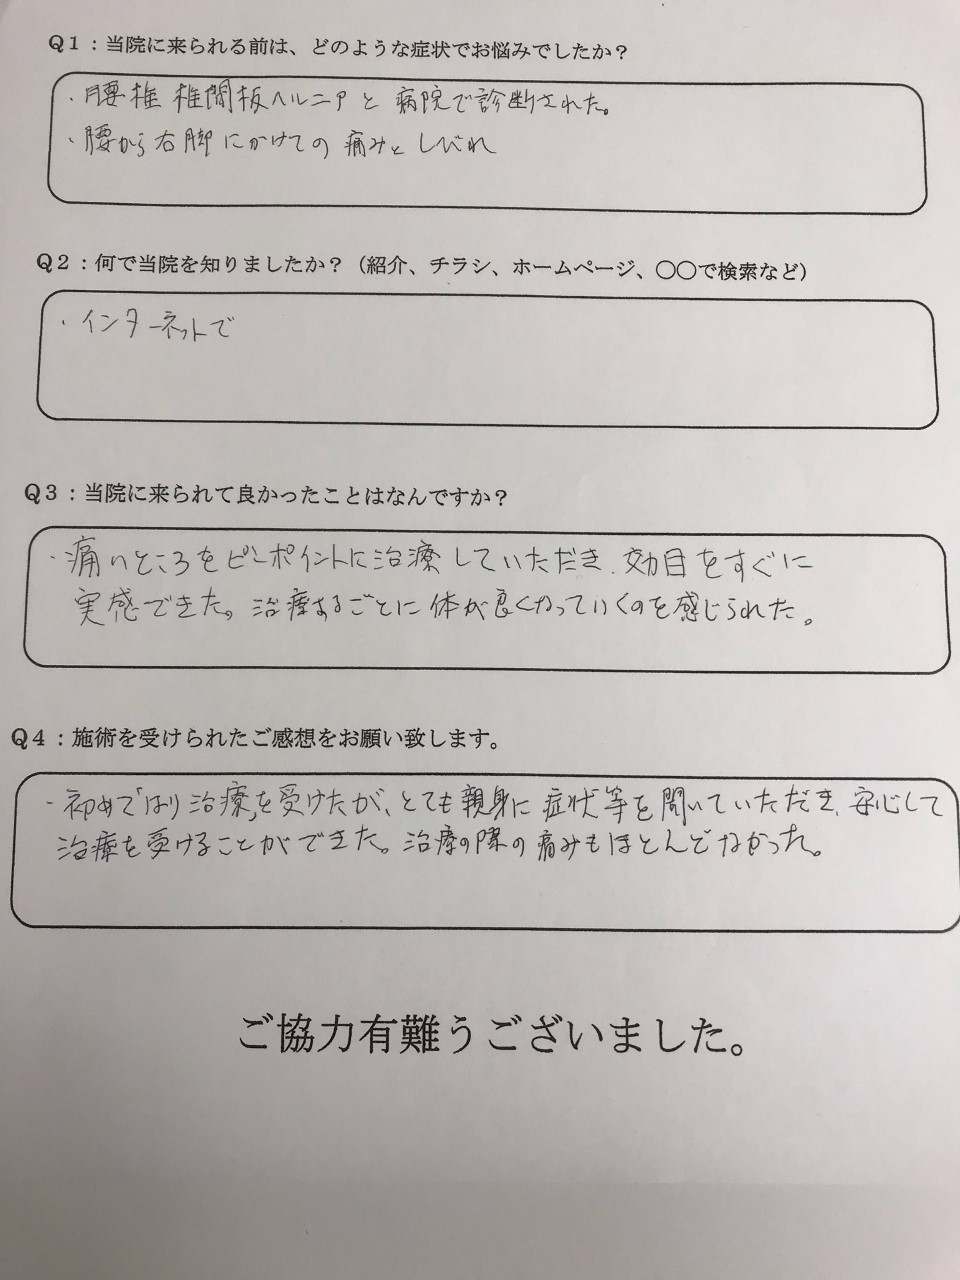 Q1：当院に来られる前は、どのような症状でお悩みでしたか？
・腰椎椎間板ヘルニアと病院で診断された。
・腰から右脚にかけての痛みとしびれ
Q2：何で当院を知りましたか？（紹介、チラシ、ホームページ、〇〇で検索など）
・インターネットで
Q3：当院に来られて良かったことはなんですか？
・痛いところをピンポイントに治療していただき、効目をすぐに
実感できた。治療するごとに体が良くなっていくのを感じられた。
Q4：施術を受けられたご感想をお願い致します。
・初めてはり治療を受けたが、とても親身に症状等を聞いていただき、安心して
治療を受けることができた。治療の際の痛みもほとんどなかった。
ご協力有難うございました。